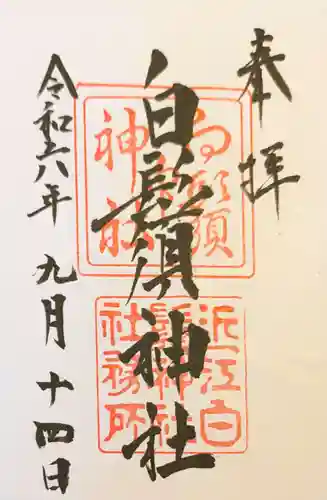 奉拝
白鬚神社
令和六年九月十四日
白鬚神社
近江白鬚神社社務所